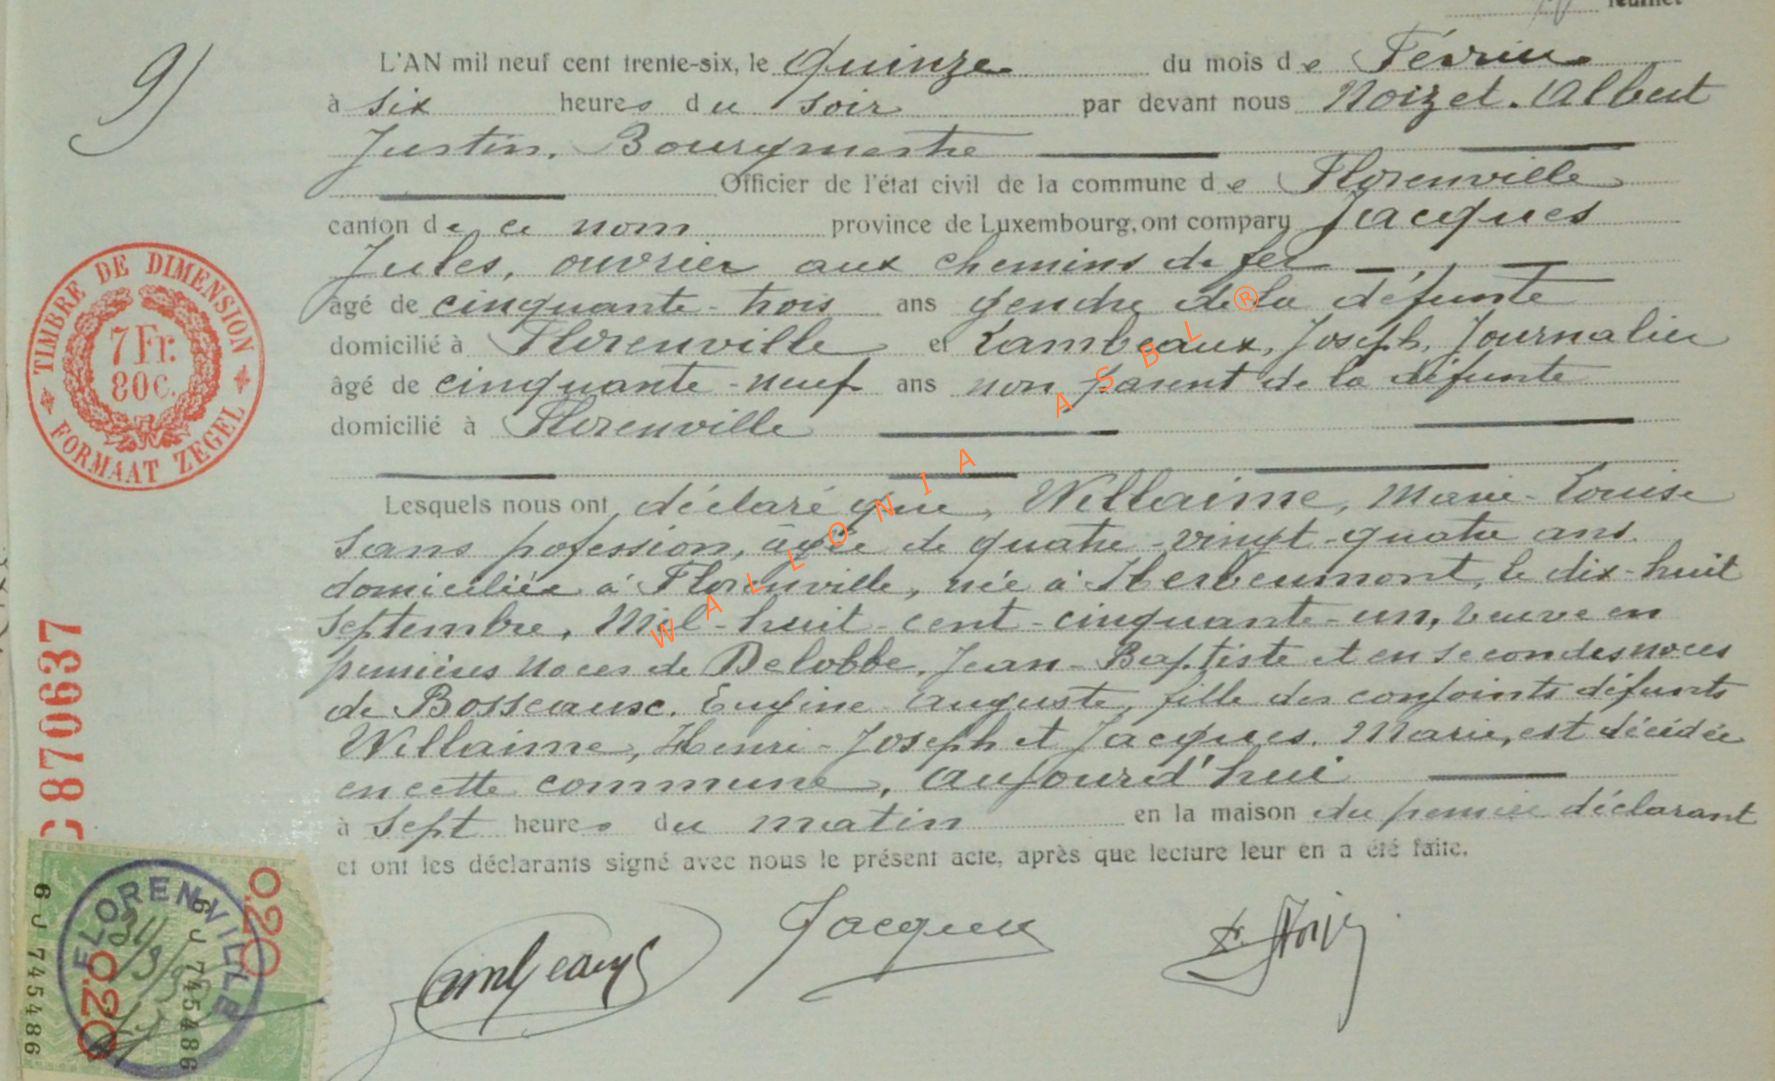 feuillet
9)
L'AN mil neuf cent trente-six, le Quinze du mois de Février
à six heures du soir par devant nous Noizet. Albert
Justin, Bourgmestre
Officier de l'état civil de la commune de Florenville
canton de ce nom province de Luxembourg, ont comparu Jacques
Jules, ouvrier aux chemins de fer
âgé de cinquante-trois ans gendre de la défunte
domicilié à Florenville et Lambeaux, Joseph, Journalier
âgé de cinquante-neuf ans non parent de la défunte
domicilié à Florenville
Lesquels nous ont déclaré que, Willaime, Marie-Louise
sans pofession, âgée de quatre-vingt-quatre ans.
domiciliée à Florenville, née à Herbeumont, le dix-huit
septembre, Mil-huit-cent-cinquante-un, veuve en
premières noces de Delobbe, Jean-Baptiste et en secondes noces
de Bosseaux, Eugène Auguste, fille des conjoints défunts
Willaime, Henri-Joseph et Jacques, Marie, est décédée
en cette commune, aujourd'hui
à sept heures du matin en la maison du premier déclarant
et ont les déclarants signé avec nous le présent acte, après que lecture leur en a été faite.
Lambeaux Jacques
TIMBRE DE DIMENSION
7 Fr.
80c.
FORMAAT ZEGEL
870637
FLORENVILLE
0.20
0.20
6 J 745486
6 J 745486
WALLONIA ASBL ®